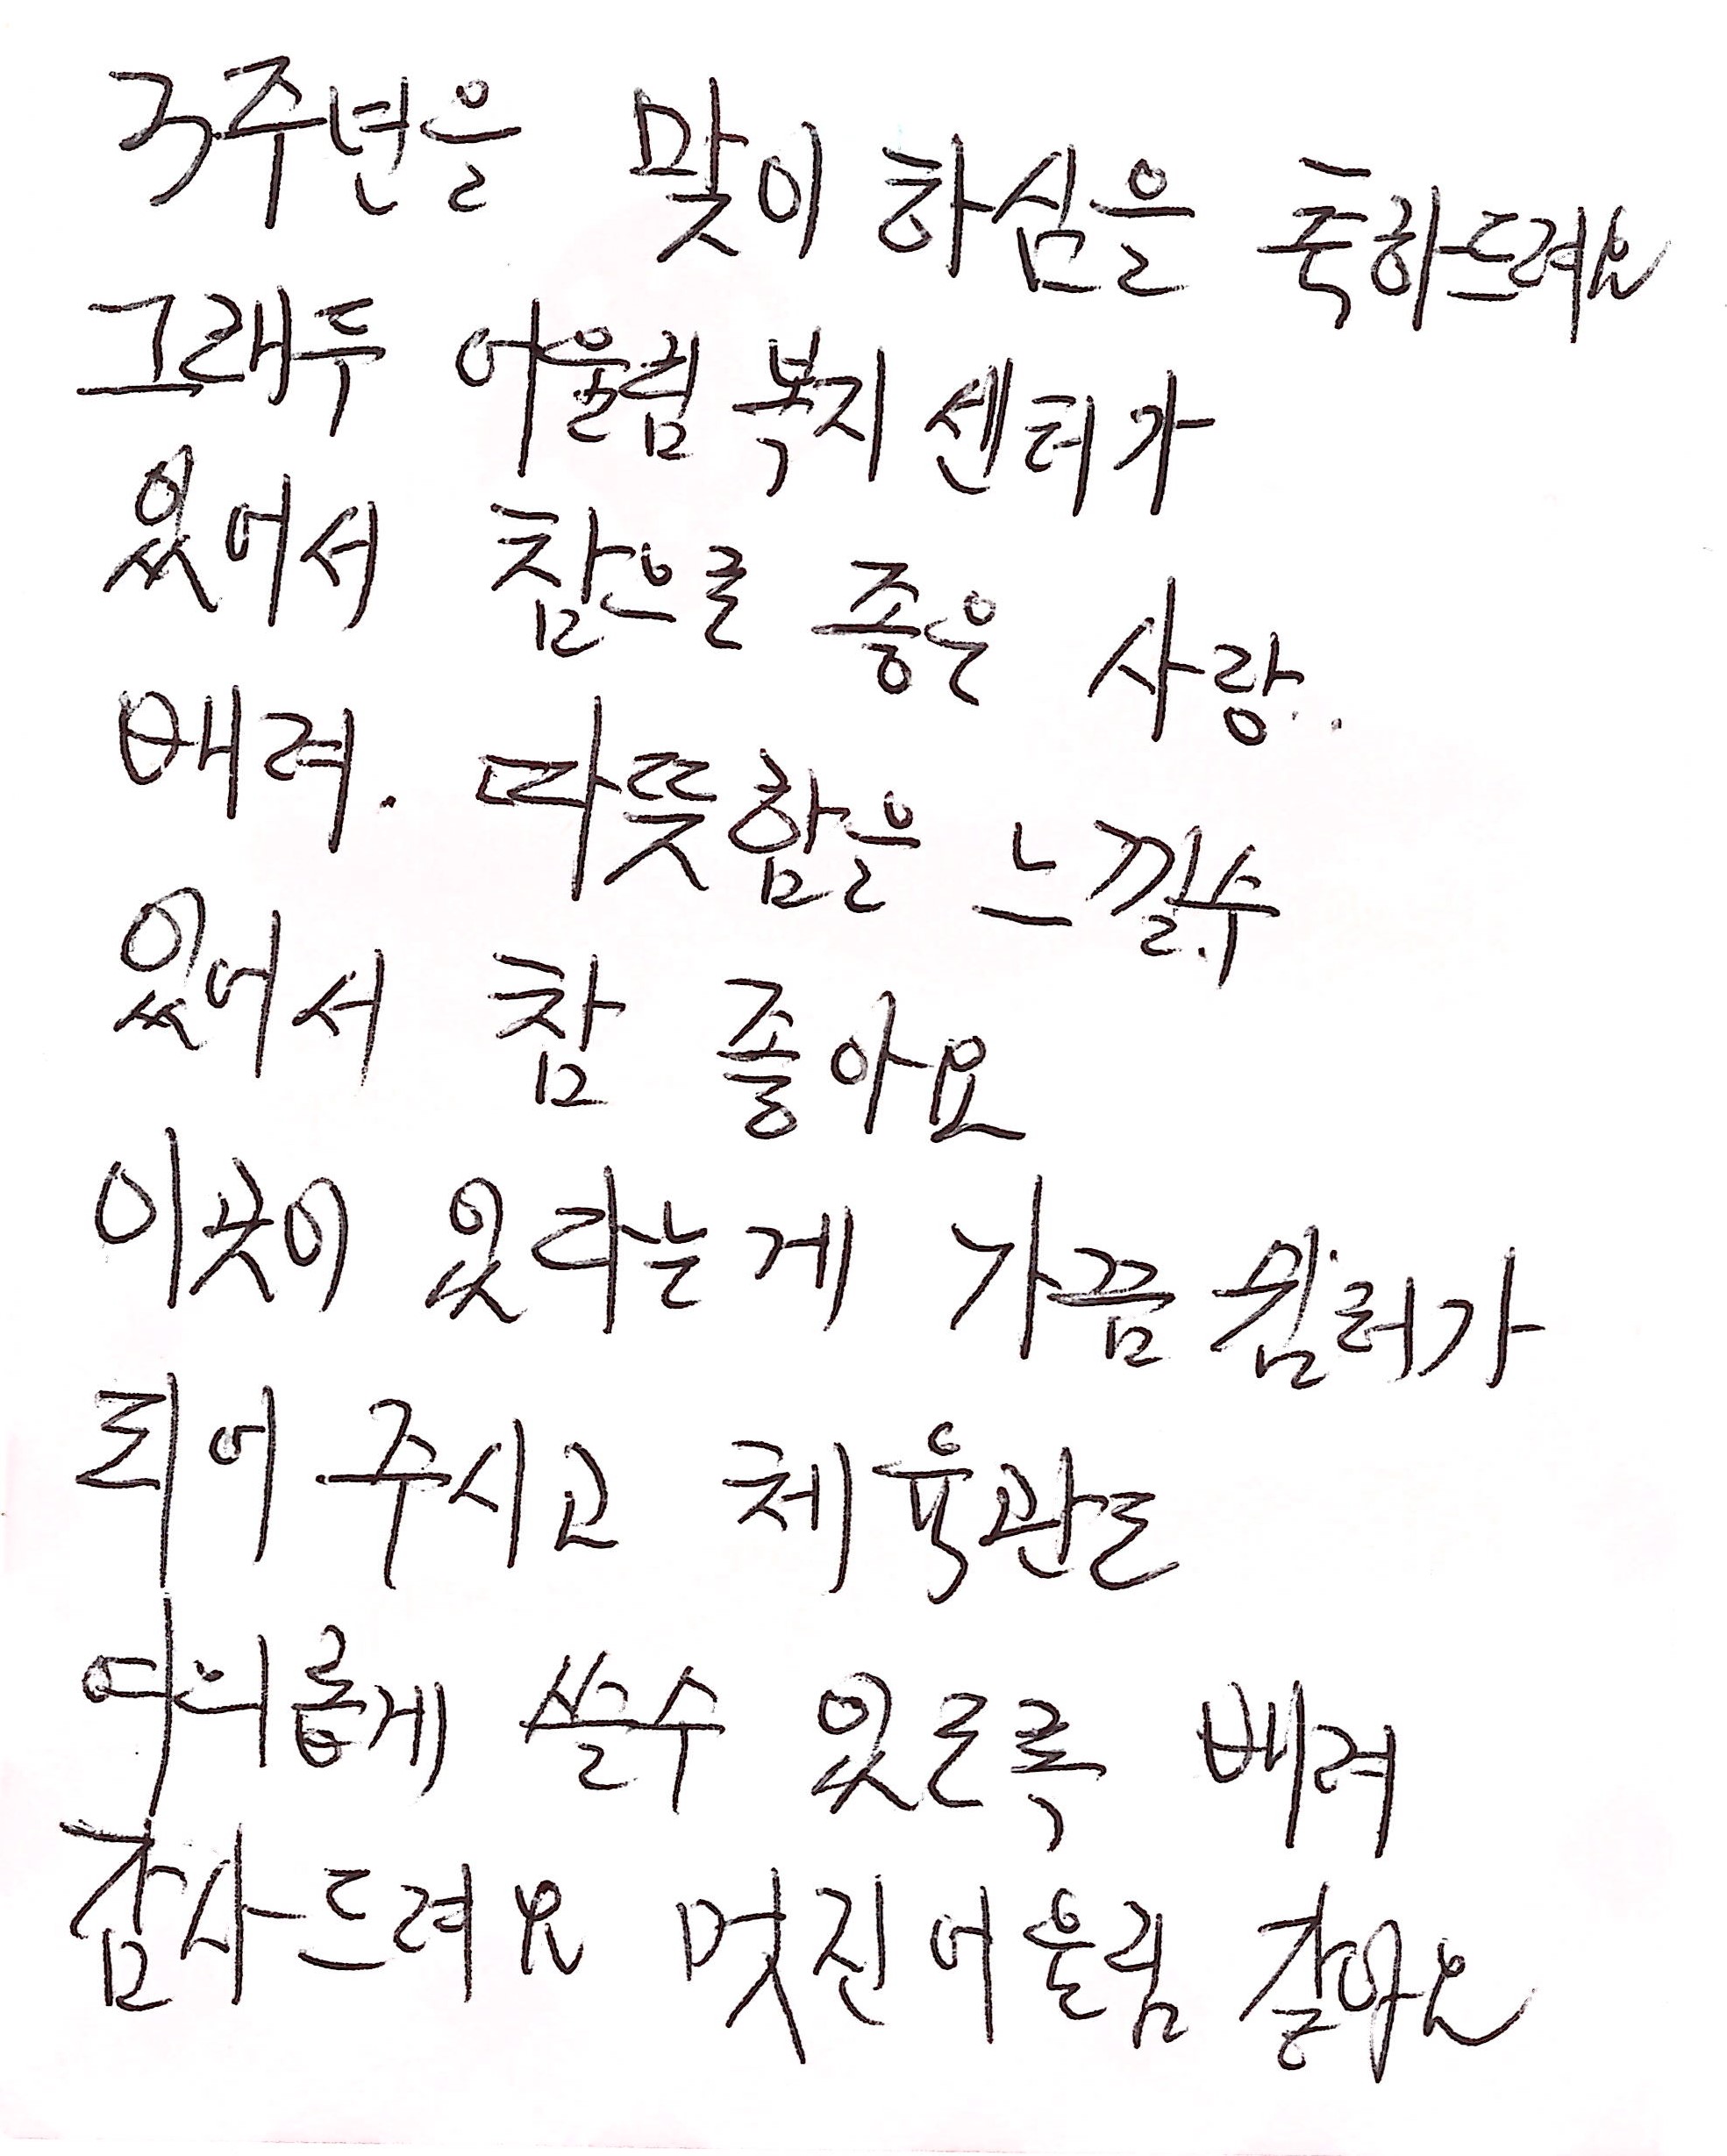 3주년을 맞이 하심을 축하드려요
그래두 어울림 복지 센터가
있어서 참으로 좋은 사랑..
배려. 따뜻함을 느낄수
있어서 참 좋아요
이곳이 있다는게 가끔 쉼터가
되어 주시고 체육관도
여의롭게 쓸수 있도록 배려
감사드려요 멋진 어울림 좋아요